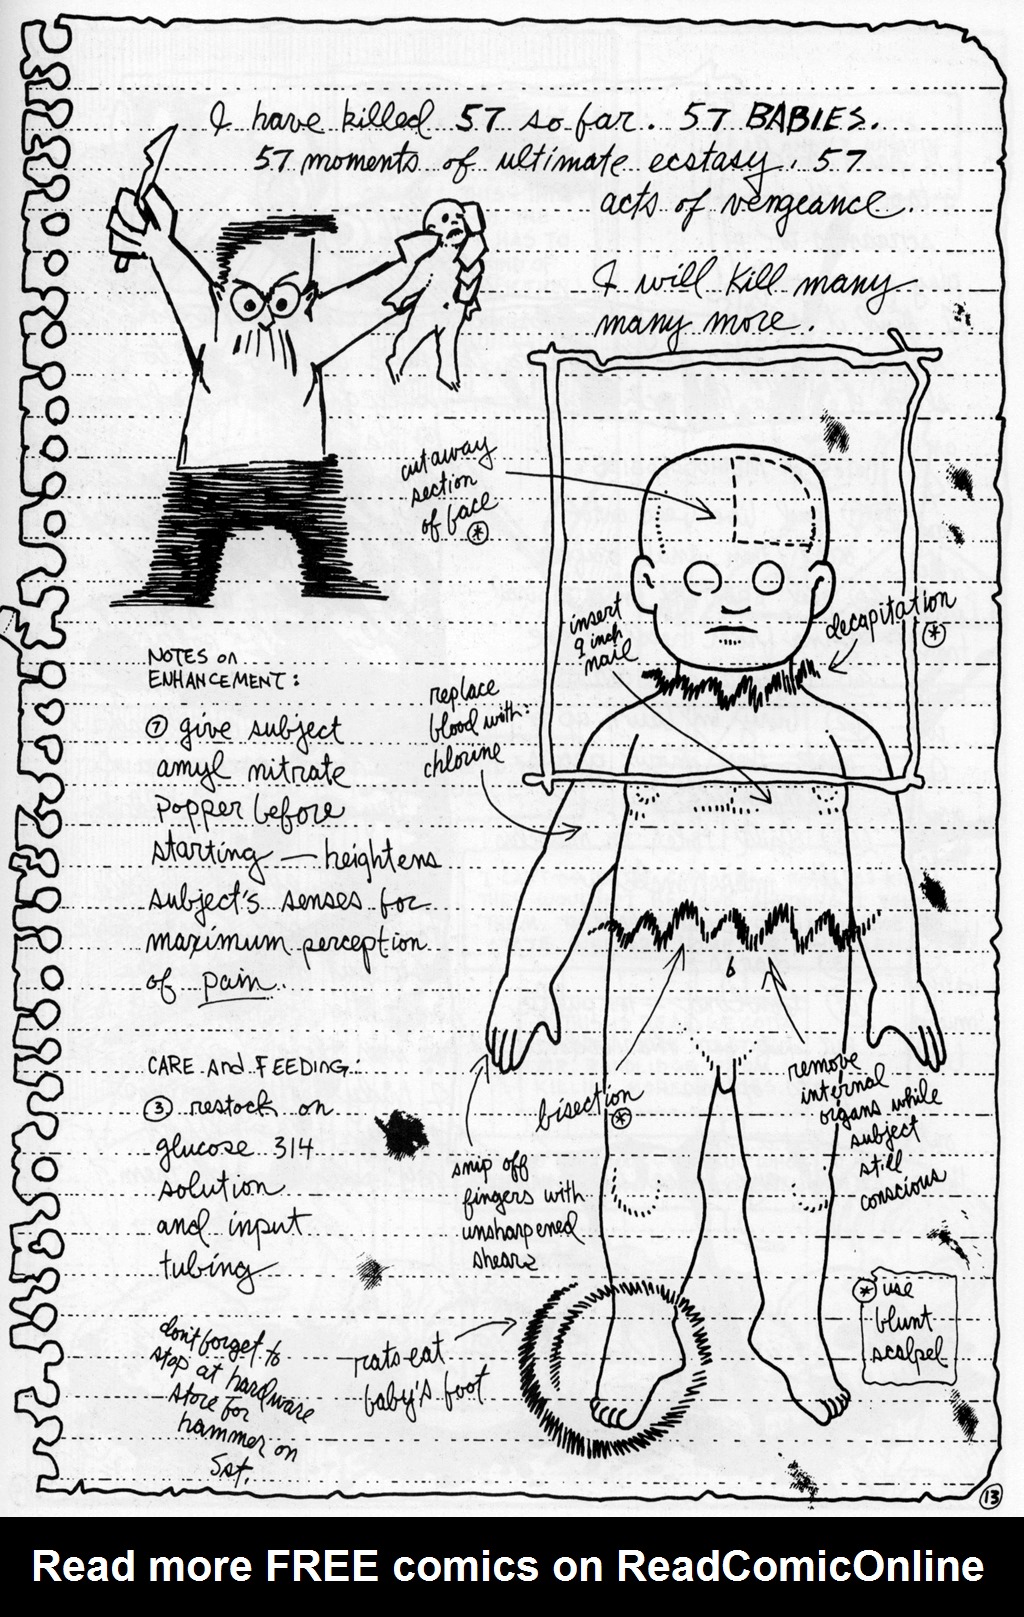 I have killed 57 so far. 57 BABIES.
57 moments of ultimate ecstasy. 57
acts of vengeance.
I will kill many
many more.
cutaway
section
of face
*
insert
9 inch
nail
decapitation
*
NOTES on
ENHANCEMENT:
replace
blood with:
chlorine
7 give subject
amyl nitrate
popper before
starting — heightens
subject's senses for
maximum perception
of pain.
CARE and FEEDING:
3 restock on
glucose 314
solution
and input
tubing
bisection
*
remove
internal
organs while
subject
still
conscious
snip off
fingers with
unsharpened
shears
* use
blunt
scalpel
don't forget to
stop at hardware
store for
hammer on
Sat.
rats eat
baby's foot
13
Read more FREE comics on ReadComicOnline